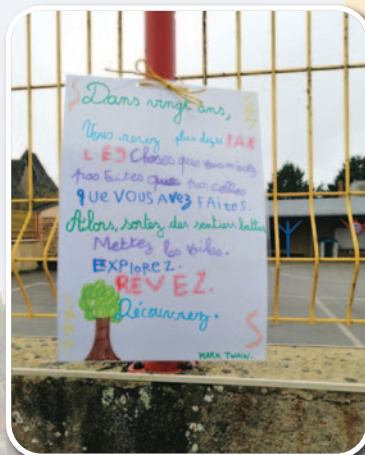 Dans vingt ans,
Vous serez plus déçus PAR
LES Choses que vous n'avez
pas faites que par celles
que VOUS AVEZ FAITES.
Alors, sortez des sentiers battus
Mettez les voiles.
EXPLOREZ.
REVEZ.
Découvrez.
MARK TWAIN.